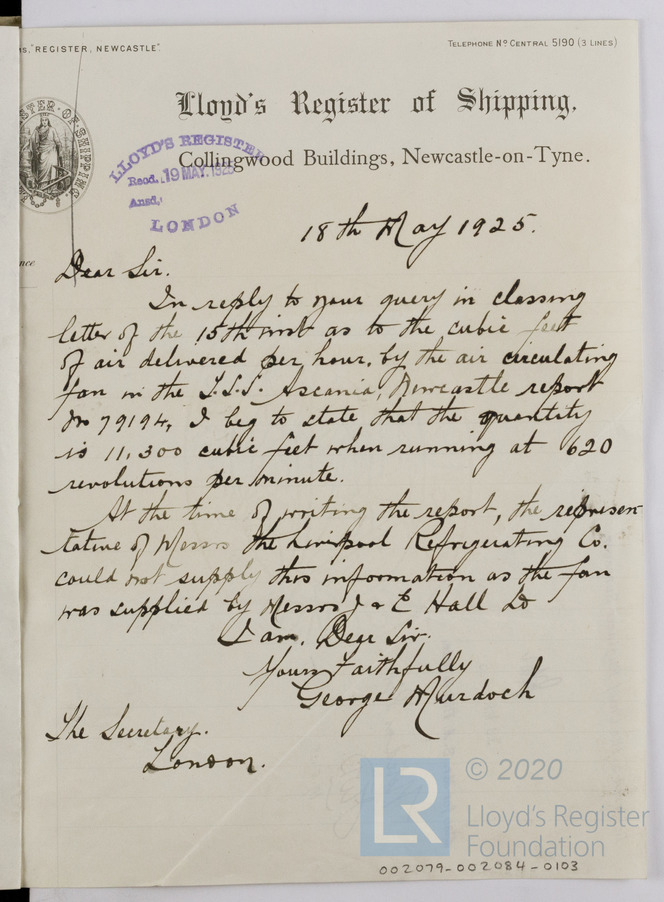 MS. "REGISTER, NEWCASTLE".
TELEPHONE Nº CENTRAL 5190 (3 LINES)
Lloyd's Register of Shipping,
Collingwood Buildings, Newcastle-on-Tyne.
LLOYD'S REGISTER
Recd. 19 MAY. 1925
Ansd.
LONDON
18th May 1925.
nce
Dear Sir.
In reply to your query in classing
letter of the 15th inst as to the cubic feet
of air delivered per hour, by the air circulating
fan in the T.S.S. Ascania, Newcastle report
No 79194, I beg to state that the quantity
is 11,300 cubic feet when running at 620
revolutions per minute.
At the time of writing the report, the represen-
tative of Messrs the Liverpool Refrigerating Co.
could not supply this information as the fan
was supplied by Messrs J & E Hall Ld
I am, Dear Sir.
Yours Faithfully
George Murdoch
The Secretary.
London.
LR © 2020
Lloyd's Register
Foundation
002079-002084-0103